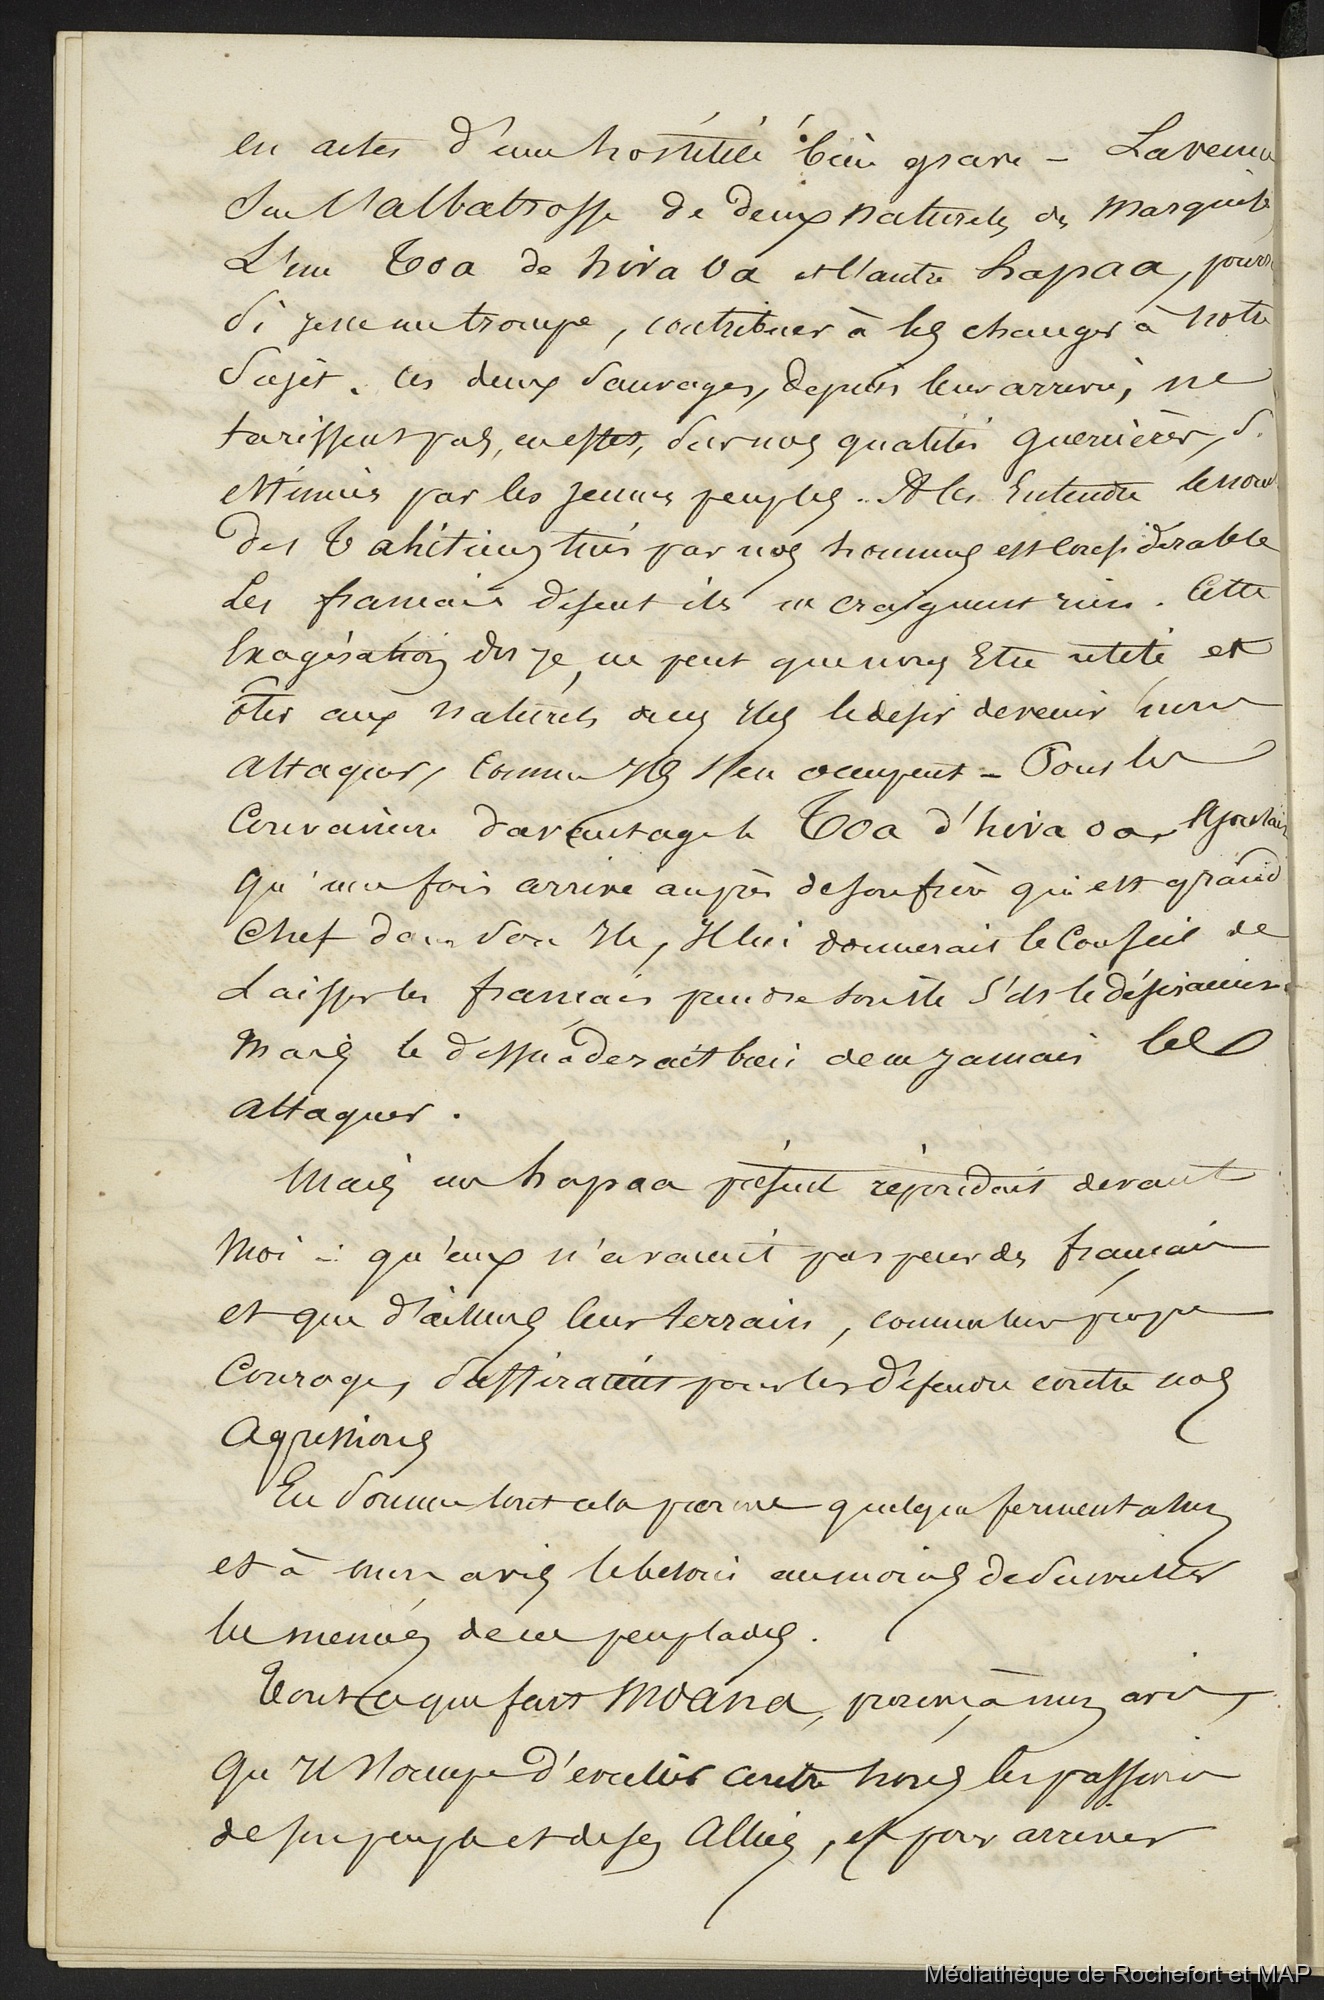 en actes d'une hostilité bien grave - La venue
Sur l'albatrosse de deux naturels des Marquises
L'un Toa de hiva oa et l'autre hapaa, pourra
Si je ne me trompe, contribuer à les changer à notre
Sujet. ces deux Sauvages, depuis leur arrivée, ne
tarissent pas, en effet, Sur nos qualités Guerrières, Si
estimées par les jeunes peuples. A les Entendre le nombre
des Tahitiens tués par nos hommes est Considérable
Les français disent ils ne craignent rien. Cette
Exagération dis je, ne peut que nous Etre utile et
ôter aux naturels de ces Iles le désir de venir nous
attaquer, Comme Ils S'en occupent - Pour les
Convaincre davantage le Toa d'hiva oa, Ajoutait
qu'une fois arrivé auprès de son frère qui est grand
Chef dans Son Ile, Il lui donnerait le Conseil de
Laisser les français prendre son île s'ils le désiraient
Mais le dissuaderait bien de ne jamais les
attaquer.
Mais un hapaa présent répondait devant
Moi : qu'eux n'avaient pas peur des français
et que d'ailleurs leur terrain, comme leur propre
Courage, Suffiraient pour les défendre contre nos
Agressions
En Somme tout cela prouve quelque fermentation
et à mon avis le besoin au moins de Surveiller
les menées de ces peuplades.
Tout ce que fait Moana, prouve, à mon avis,
qu'Il S'occupe d'exciter contre nous les passions
de son peuple et de ses Alliés, et pour arriver
Médiathèque de Rochefort et MAP